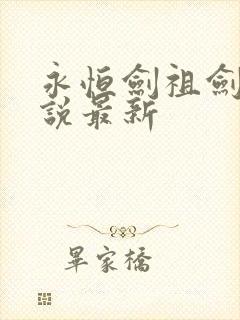 永恒劍祖劍
說最新
畢家橋